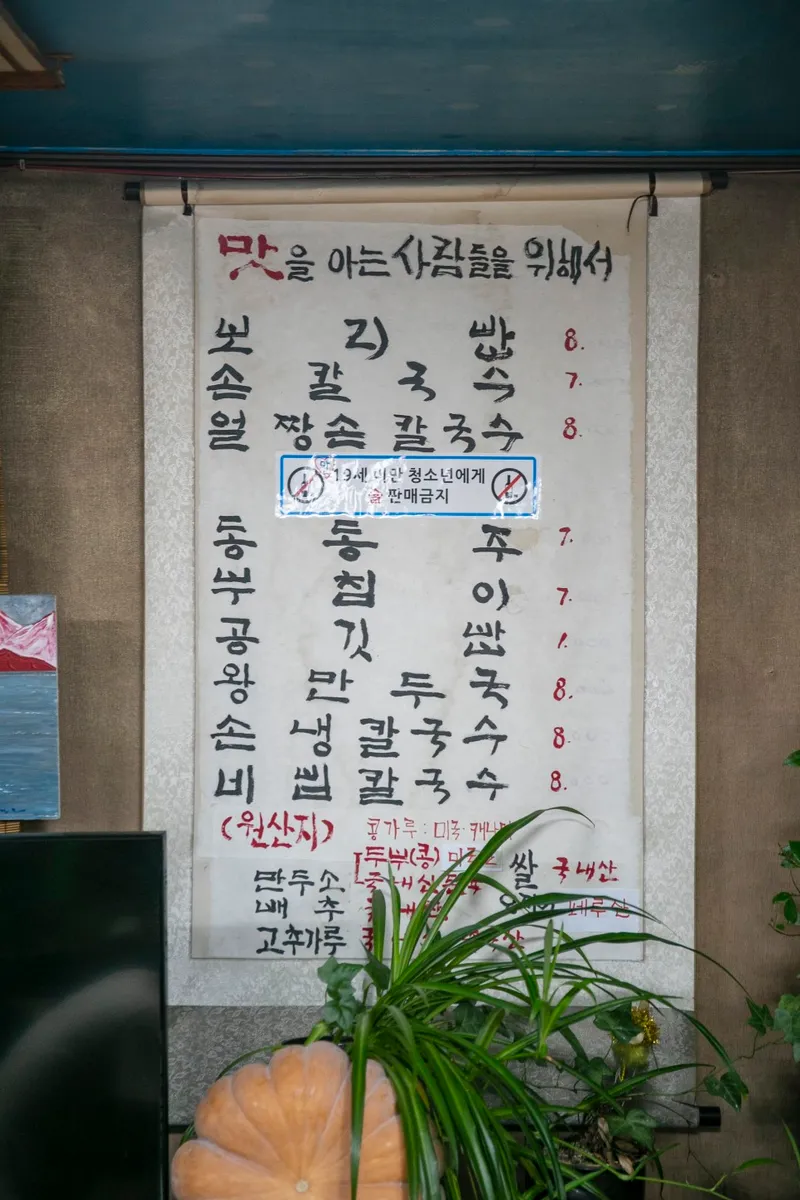 맛을 아는 사람들을 위해서
보리밥 8.
손칼국수 7.
얼짱손칼국수 8.
19세 미만 청소년에게
술 판매금지
동동주 7.
부침이 7.
공깃밥 1.
왕만두국 8.
손냉칼국수 8.
비빔칼국수 8.
(원산지) 콩가루: 미국·캐나다
두부(콩)
만두소 쌀 국내산
배추 페루산
고추가루